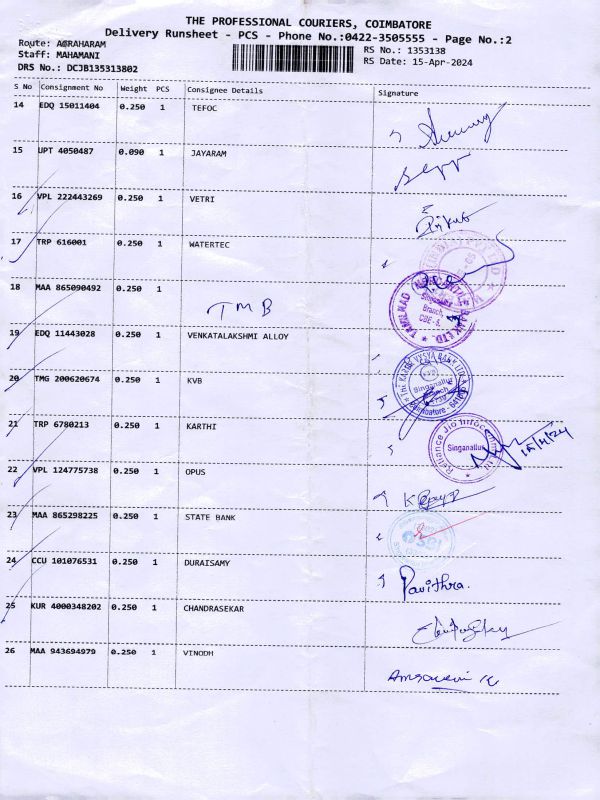 THE PROFESSIONAL COURIERS, COIMBATORE
Delivery Runsheet - PCS - Phone No.:0422-3505555 - Page No.:2
Route: AGRAHARAM
RS No.: 1353138
Staff: MAHAMANI
RS Date: 15-Apr-2024
DRS No.: DCJB135313802
S No Consignment No Weight PCS Consignee Details Signature
14 EDQ 15011404 0.250 1 TEFOC
15 UPT 4050487 0.090 1 JAYARAM
16 VPL 222443269 0.250 1 VETRI
17 TRP 616001 0.250 1 WATERTEC
18 MAA 865090492 0.250 1
TMB
TAMILNAD MERCANTILE BANK LTD. Singanallur Branch, CBE - 5.
19 EDQ 11443028 0.250 1 VENKATALAKSHMI ALLOY
20 TMG 200620674 0.250 1 KVB
The KARUR VYSYA BANK LTD KVB Singanallur Branch Coimbatore
21 TRP 6780213 0.250 1 KARTHI
Reliance Jio Infocomm Singanallur 15/4/24
22 VPL 124775738 0.250 1 OPUS
23 MAA 865298225 0.250 1 STATE BANK
SBI
24 CCU 101076531 0.250 1 DURAISAMY
Pavithra.
25 KUR 4000348202 0.250 1 CHANDRASEKAR
26 MAA 943694979 0.250 1 VINODH